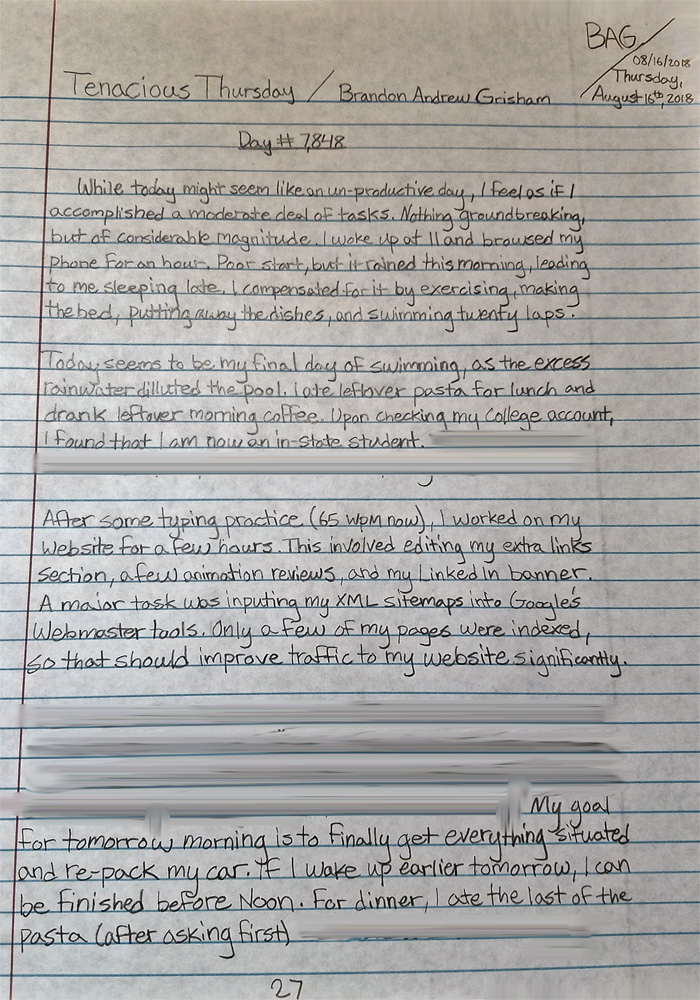 BAG
08/16/2018
Thursday,
August 16th, 2018
Tenacious Thursday / Brandon Andrew Grisham
Day # 7,848
While today might seem like an un-productive day, I feel as if I
accomplished a moderate deal of tasks. Nothing groundbreaking,
but of considerable magnitude. I woke up at 11 and browsed my
phone for an hour. Poor start, but it rained this morning, leading
to me sleeping late. I compensated for it by exercising, making
the bed, putting away the dishes, and swimming twenty laps.
Today seems to be my final day of swimming, as the excess
rainwater dilluted the pool. I ate leftover pasta for lunch and
drank leftover morning coffee. Upon checking my College account,
I found that I am now an in-state student.
After some typing practice (65 WPM now), I worked on my
website for a few hours. This involved editing my extra links
section, a few animation reviews, and my LinkedIn banner.
A major task was inputing my XML sitemaps into Google's
Webmaster tools. Only a few of my pages were indexed,
so that should improve traffic to my website significantly.
My goal
for tomorrow morning is to finally get everything situated
and re-pack my car. If I wake up earlier tomorrow, I can
be finished before Noon. For dinner, I ate the last of the
pasta (after asking first)
27